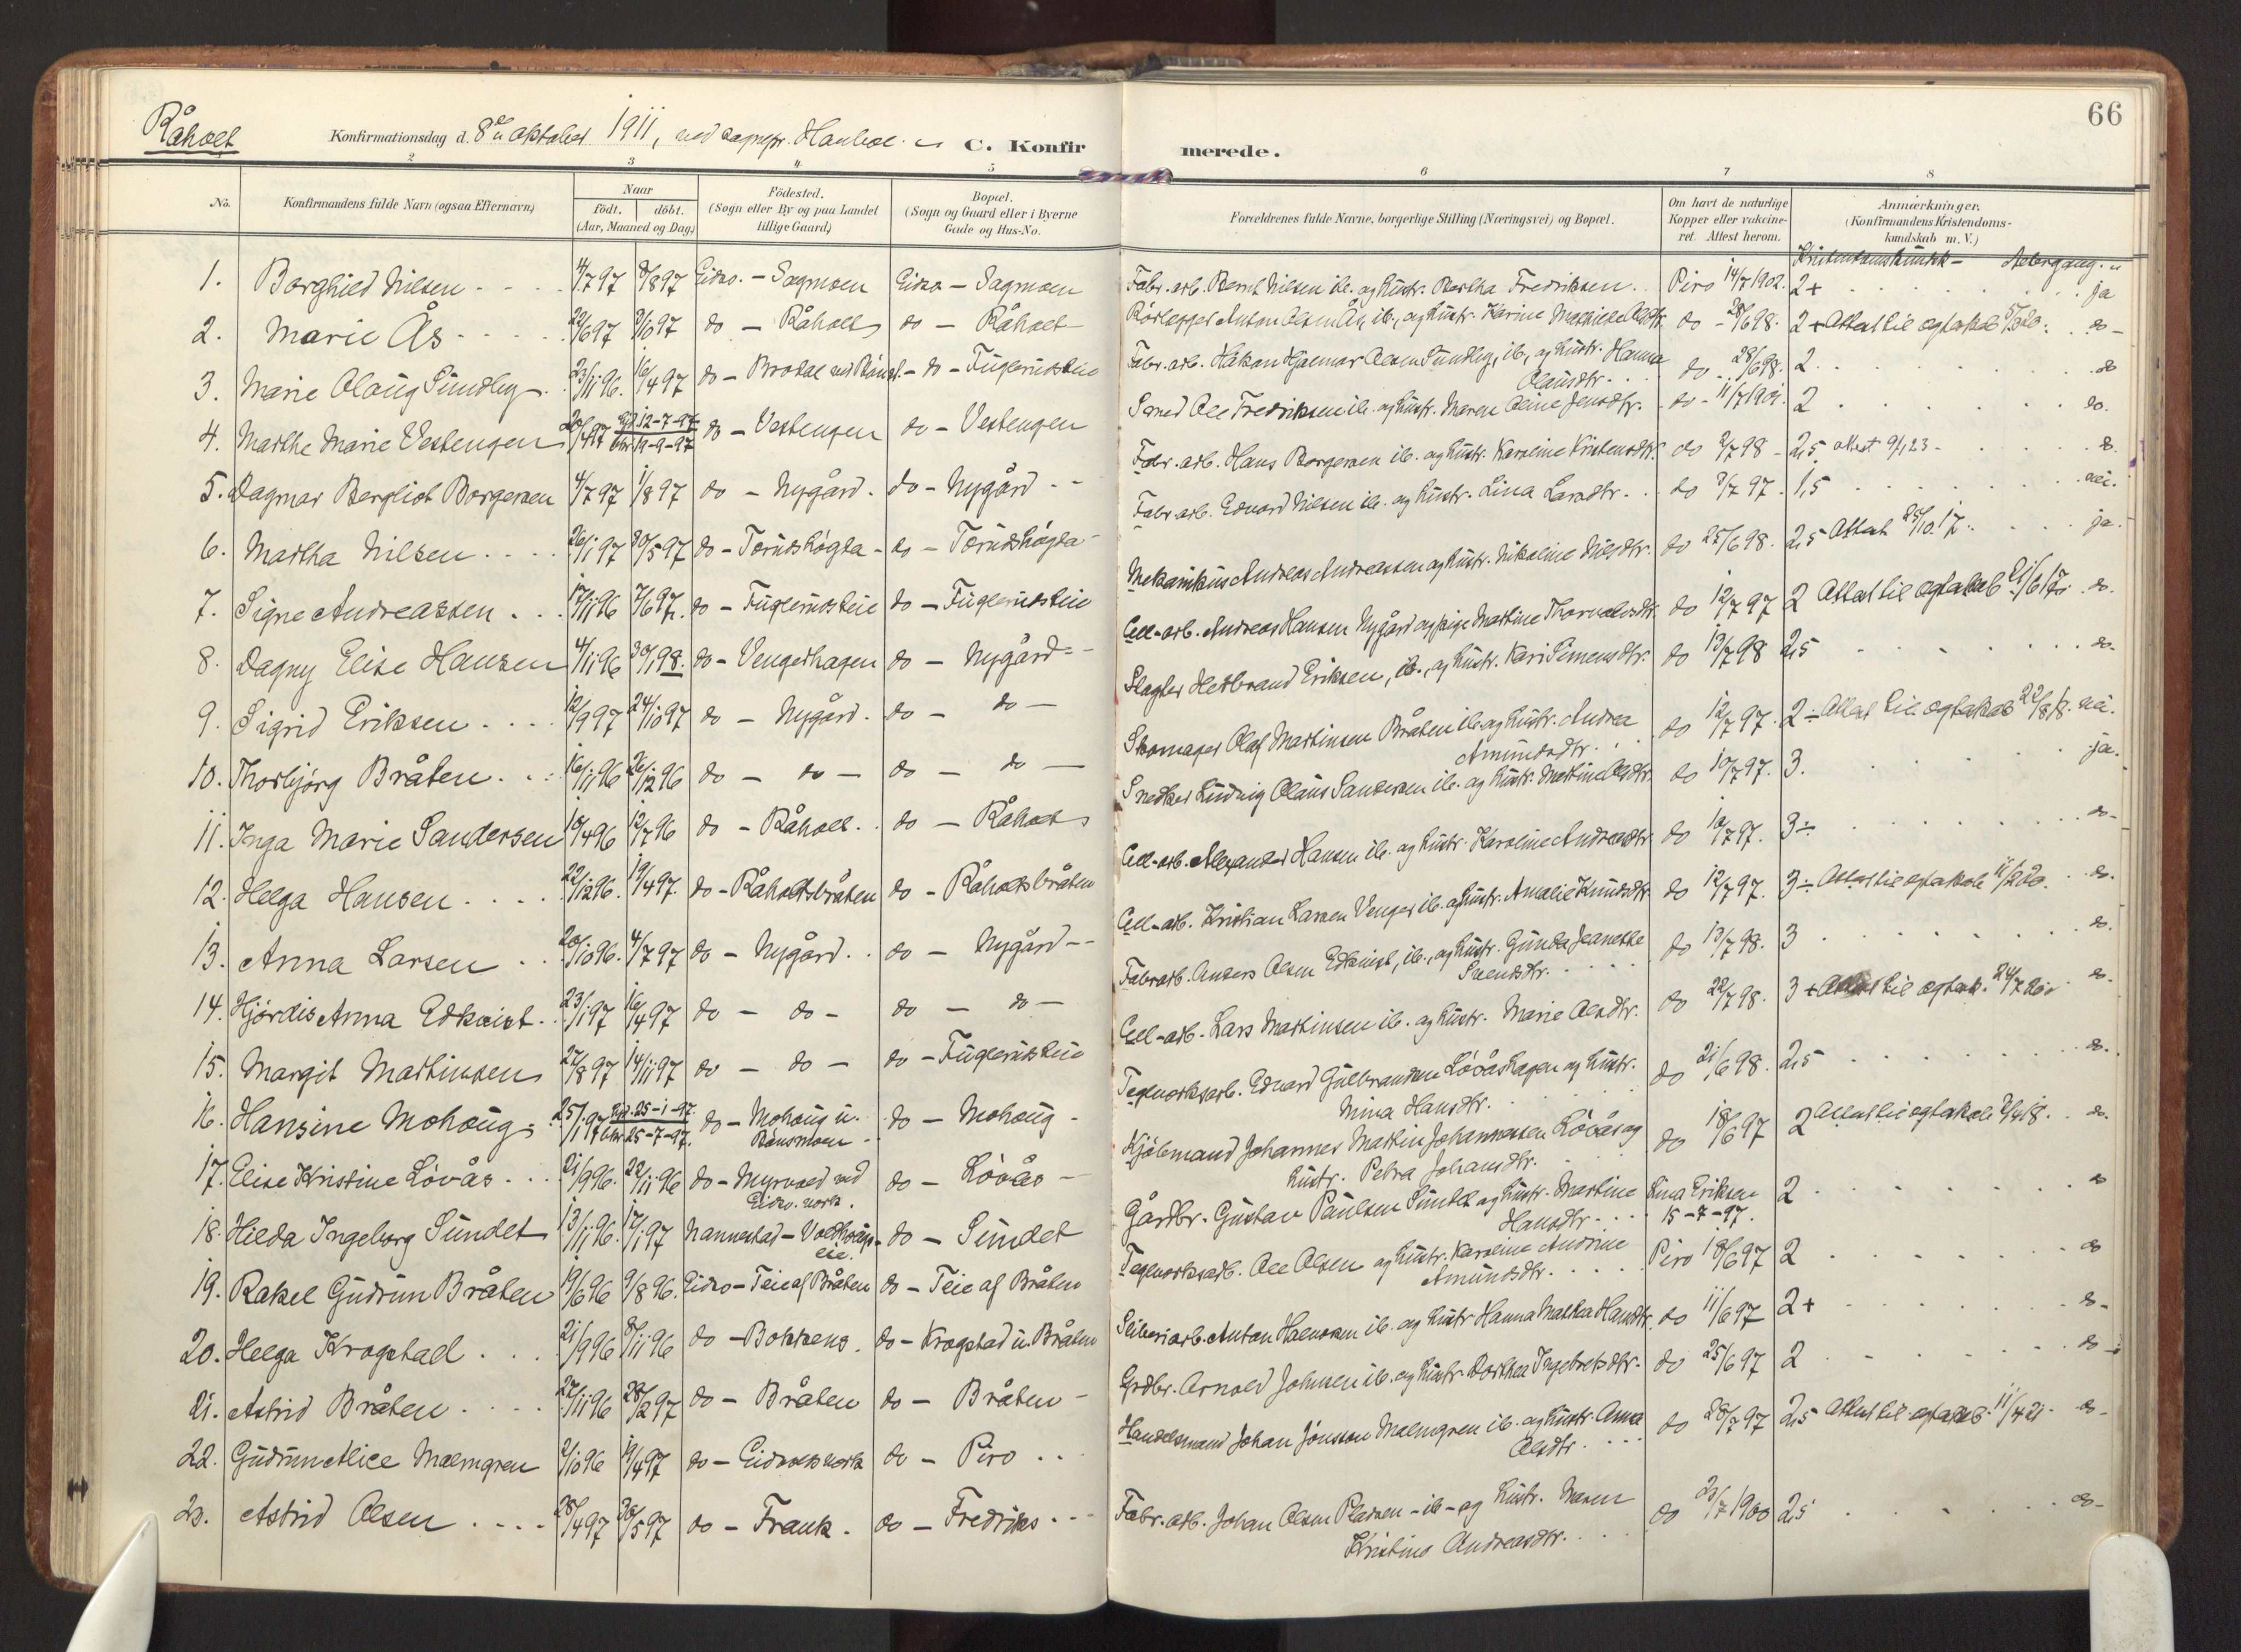 66
Råholt Konfirmationsdag d. 8de oktober 1911, ved sognepr. Hauboe. C. Konfirmerede.
2 3 4 5 6 7 8
No. Konfirmandens fulde Navn (ogsaa Efternavn) Naar født. døbt. (Aar, Maaned og Dag) Födested. (Sogn eller By og paa Landet tillige Gaard) Bopæl. (Sogn og Gaard eller i Byerne Gade og Hus-No. Forældrenes fulde Navne, borgerlige Stilling (Næringsvei) og Bopæl. Om havt de naturlige Kopper eller vakcineret. Attest herom. Anmærkninger. (Konfirmandens Kristendomskundskab m. V.)
Kristendomskundsk-
1. Borghild Nilsen 4/7 97 8/8 97 Eidsv. - Sagmoen Eidsv - Sagmoen Fabr. arb. Bernt Nilsen ib. og hustr. Bertha Fredriksen Piro 14/7 1902. 2+ ja
2. Marie Ås 22/6 97 3/10 97 do - Råholt do - Råholt Rörlægger Anton Olsen Ås, ib., og hustr. Karine Mathilde Olsdtr. do - 28/6 98. 2+ Attest til egtskab do -
3. Marie Olaug Sundby 23/11 96. 16/4 97 do - Brodal ved Rånås. - do - Fuglerudsteie Fabr. arb. Håkan Hjalmar Olsen Sundby, ib., og hustr. Hanna Olausdtr. do 28/6 98. 2 do
4. Marthe Marie Vestengen 20/4 97 12-7-97 19-9-97 do - Vestengen do - Vestengen Smed Ole Fredriksen ib. og hustr. Maren Oline Jensdtr. do - 11/7 1901. 2 do.
5. Dagmar Bergliot Borgersen 4/7 97 1/8 97 do - Nygård. do - Nygård Fabr. arb. Hans Borgersen ib. og hustr. Karoline Kristensdtr. do 2/7 98 - 2,5 attest 9/1 23 - do.
6. Martha Nilsen 26/1 97 30/5 97 do - Torudshögda - do - Torudshögda Fabr. arb. Edvard Nilsen ib. og hustr. Lina Larsdtr. do 3/7 97. 1,5 nei.
7. Signe Andreassen 17/11 96 7/6 97. do - Fuglerudsteie do - Fuglerudsteie Mekanikus Andreas Andreassen og hustr. Nikoline Nilsdtr. do 25/6 98. 2,5 Attest 25/10 17. ja.
8. Dagny Elise Hansen 4/11 96 30/1 98. do - Vengerhagen do - Nygård Cell-arb. Andreas Hansen Nygård og pige Martine Thorvaldsdtr. do 12/7 97 2 Attest til egtskab 21/6 17. do.
9. Sigrid Eriksen 12/9 97 24/10 97 do - Nygård. do - do - Slagter Helbrand Eriksen, ib., og hustr. Kari Simensdtr. do 13/7 98 2,5 do.
10. Thorbjørg Bråten 16/11 96 26/12 96 do - do - do - do - Skomager Olaf Martinsen Bråten ib. og hustr. Andrea Amundsdtr. do 12/7 97. 2÷ Attest til egtskab 22/8 18. nei.
11. Inga Marie Sandersen 10/4 96 12/7 96 do - Råholt. do - Råholt Snedker Ludvig Olaus Sandersen ib. og hustr. Martine Olsdtr. do 10/7 97. 3. ja.
12. Helga Hansen 22/12 96. 19/4 97. do - Råholtsbråten do - Råholtsbråten Cell-arb. Alexander Hansen ib. og hustr. Karoline Andreasdtr. do 12/7 97. 3÷ do.
13. Anna Larsen 20/10 96. 4/7 97 do - Nygård. do - Nygård - - Cell-arb. Kristian Larsen Venger ib. og hustr. Amalie Knudsdtr. do 12/7 97. 3÷ Attest til egtskab 11/2 20. do.
14. Hjördis Anna Edkvist 23/1 97 16/4 97 do - do - do - do - Fabr arb. Anders Olsen Edkvist, ib., og hustr. Gunda Jeanette Svensdtr. do 13/7 98. 3 do.
15. Margit Martinsen 27/8 97 14/11 97 do - do - do - Fuglerudsteie Cell-arb. Lars Martinsen ib. og hustr. Marie Olsdtr. do 22/7 98. 3+ Attest til egtsk. 24/7 20. do.
16. Hansine Mohaug 25/1 97 25-1-97 25-7-97. do - Mohaug u. Rånåsmoen do - Mohaug - Teglverksarb. Edvard Gulbrandsen Lövåshagen og hustr. Nina Hansdtr. do 21/6 98. 2,5 do.
17. Elise Kristine Lövås 21/9 96. 22/11 96 do - Myrvold ved Eidsv. verk. do - Lövås - Kjöbmand Johannes Martin Johannessen Lövås og hustr. Petra Johansdtr. do 18/6 97 2 Attest til egtskab 2/4 18. do.
18. Hilda Ingeborg Sundet 13/11 96. 17/1 97 Nannestad - eie. do - Sundet Gårdbr. Gustav Paulsen Sundet og hustr. Martine Hansdtr. Lina Eriksen 15-7-97. 2 do
19. Rakel Gudrun Bråten 19/6 96 9/8 96. Eidsv - Teie af Bråten do - Teie af Bråten Teglverksarb. Ole Olsen og hustr. Karoline Andrine Amundsdtr. Piro 18/6 97 2 do
20. Helga Krogstad 21/9 96 8/11 96 do - Bokkens. do - Krogstad u. Bråten Sliberiarb. Anton Halvorsen ib. og hustr Hanna Mathea Hansdtr. do 11/6 97 2+ do -
21. Astrid Bråten 27/11 96 28/2 97 do - Bråten do - Bråten - Grdbr. Arnold Johnsen ib. og hustr. Dorthea Ingebretsdtr. do 25/6 97 2 do -
22. Gudrun Alice Malmgren 2/10 96 19/4 97 do - Eidsvolds verk do - Piro Handelsmand Johan Jonsson Malmgren ib. og hustr. Anna Olsdtr. do 28/7 97 2,5 Attest til egtskab. 11/4 21. do -
23. Astrid Olsen 28/4 97 30/5 97 do - Frank. do - Fredriks Fabr. arb. Johan Olsen Pladsen - ib - og hustr. Maren Kristine Andreasdtr. do 23/7 1900 2,5 do -